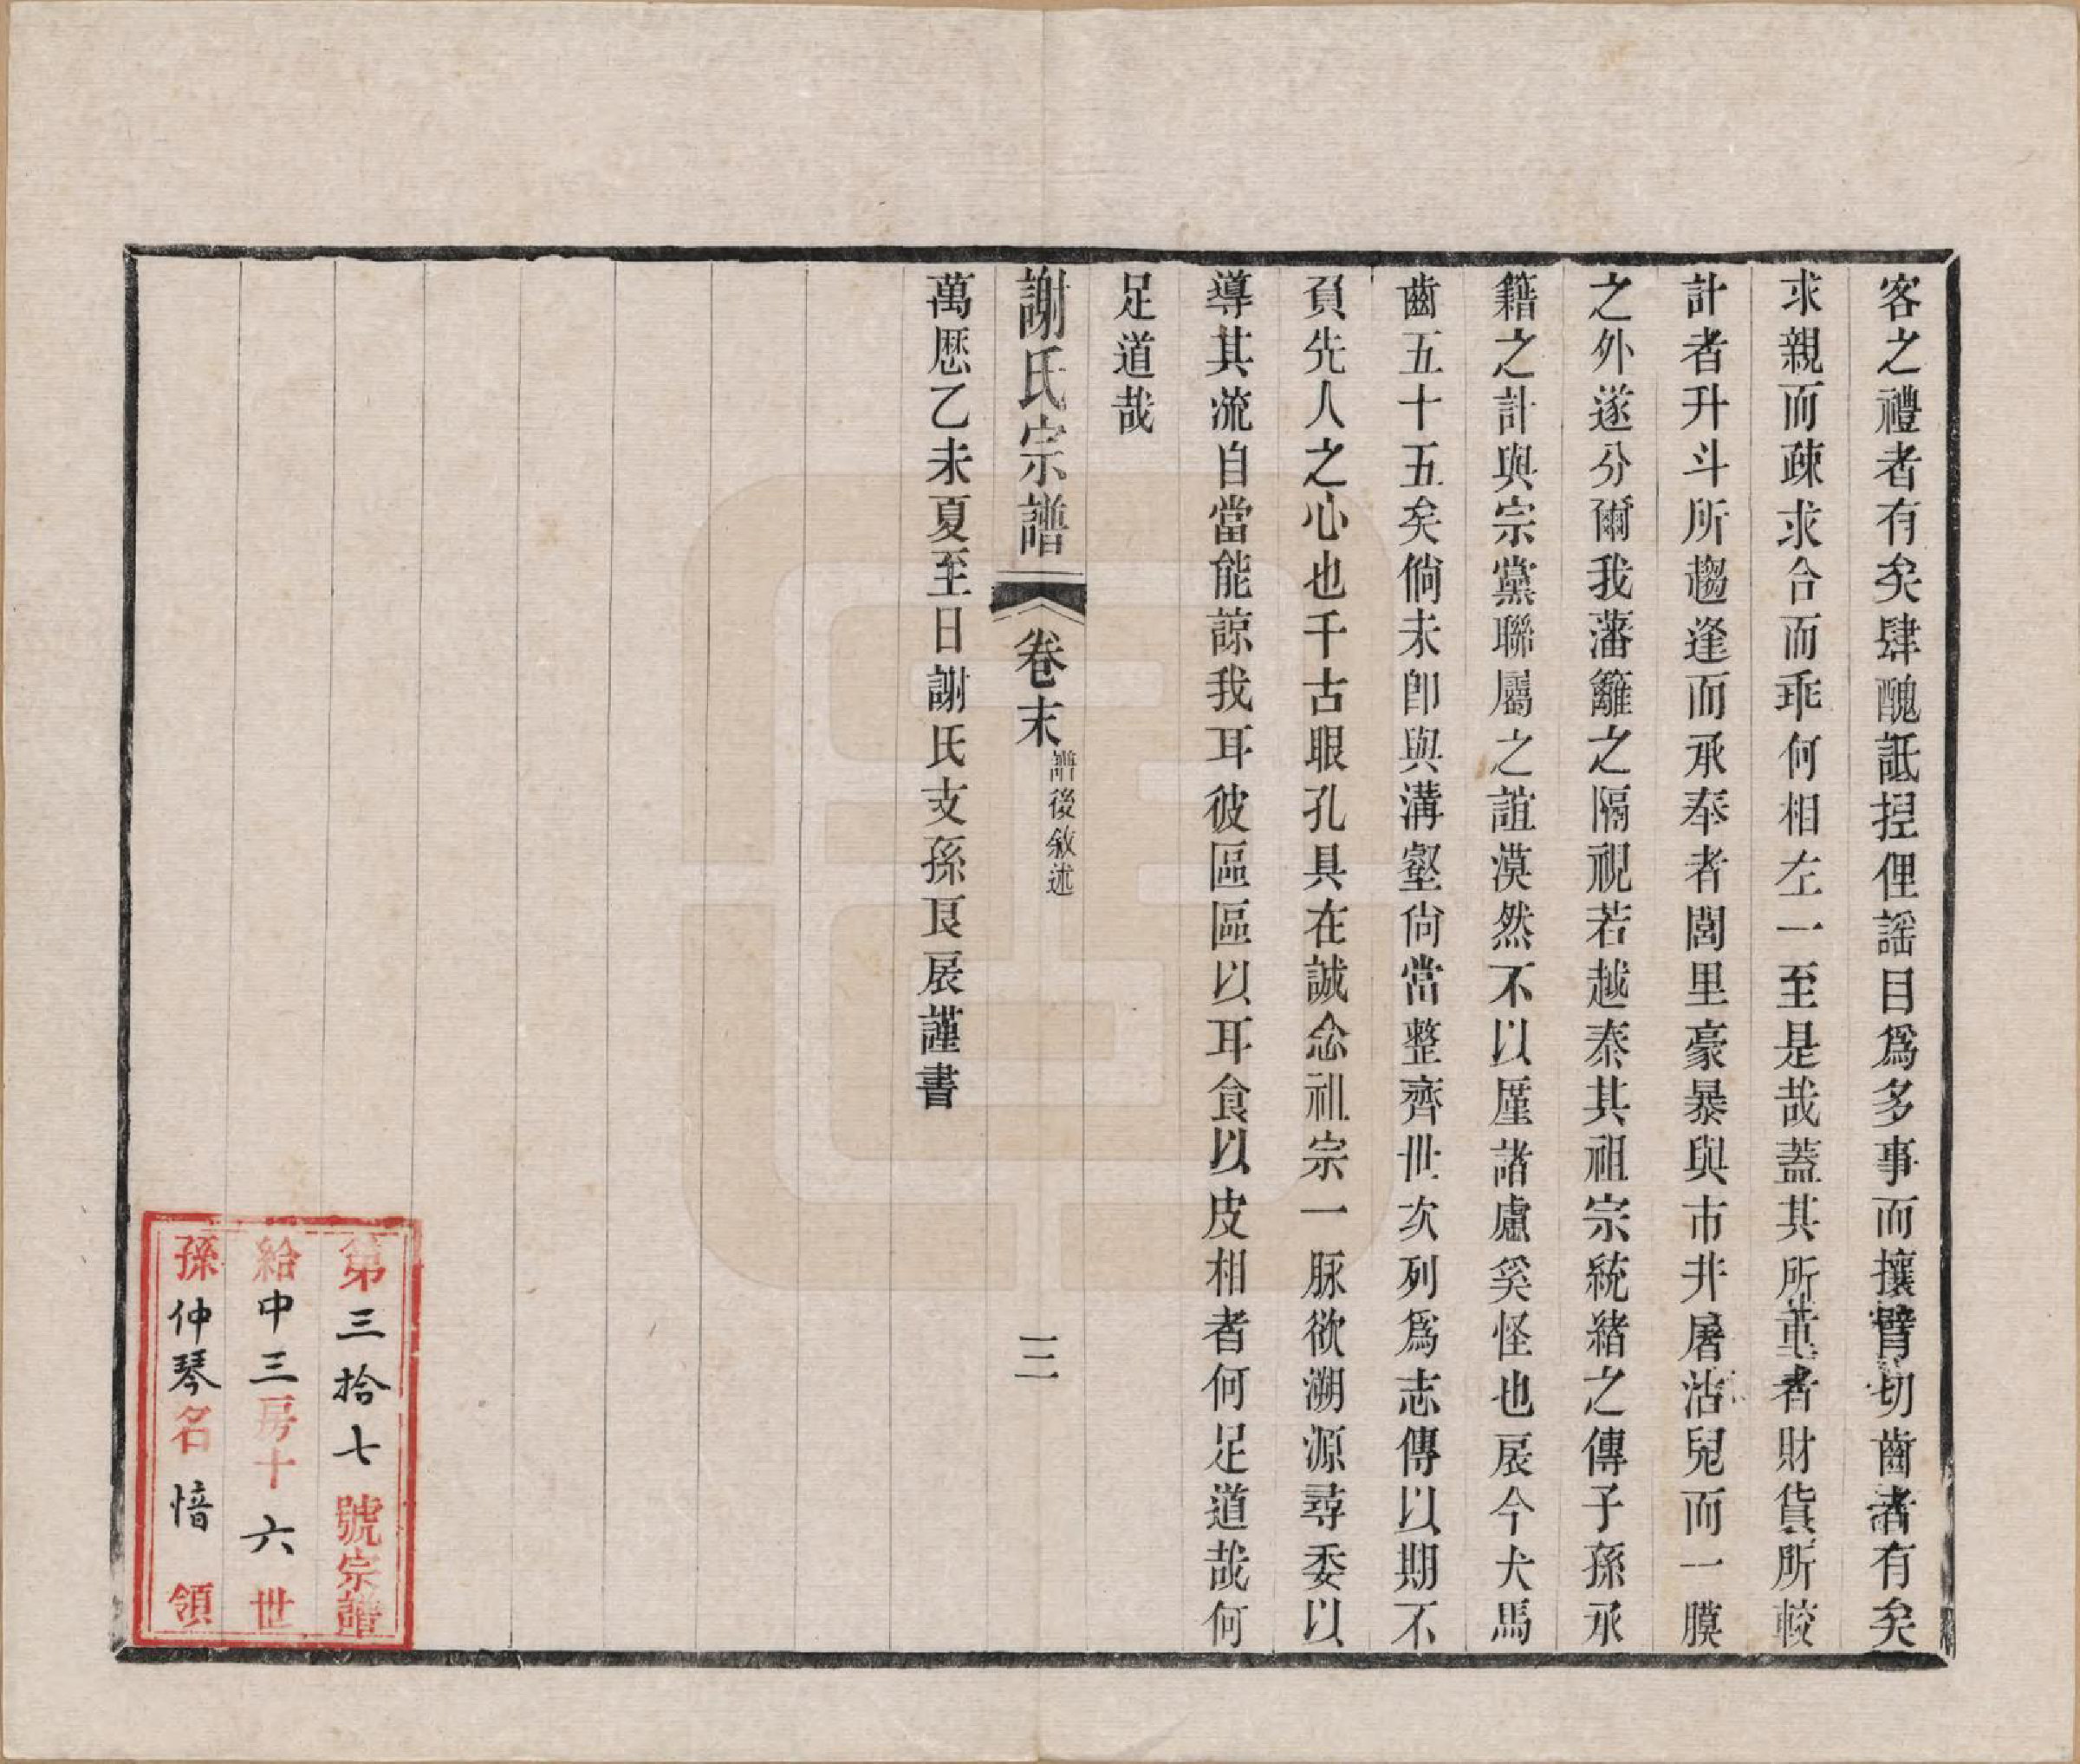 客之禮者有矣肆醜詆捏俚謡目爲多事而攘臂切齒者有矣
求親而疎求合而乖何相左一至是哉蓋其所重者財貨所較
計者升斗所趨逢而承奉者閭里豪暴與市井屠沽兒而一膜
之外遂分爾我藩籬之隔視若越秦其祖宗統緒之傳子孫承
籍之計與宗黨聯屬之誼漠然不以厪諸慮奚怪也扆今犬馬
齒五十五矣倘未卽與溝壑尙當整齊世次列爲志傳以期不
負先人之心也千古眼孔具在誠念祖宗一脈欲溯源尋委以
導其流自當能諒我耳彼區區以耳食以皮相者何足道哉何
足道哉
謝氏宗譜
卷末
譜後敘述
三
萬厯乙未夏至日謝氏支孫良扆謹書
第三拾七號宗譜
給中三房十六世
孫仲琴名愔領